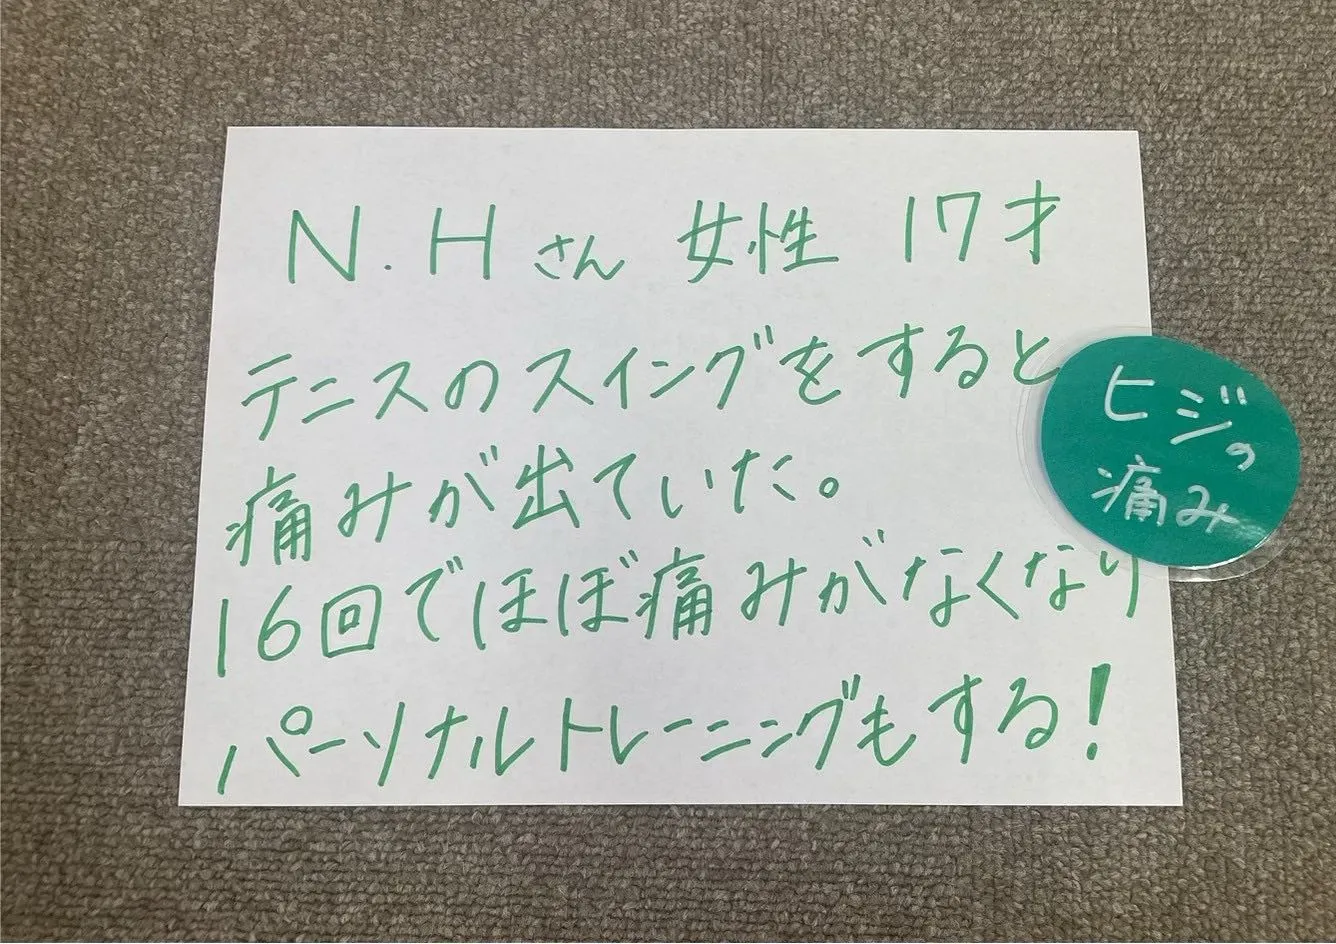 N.Hさん 女性 17才
テニスのスイングをすると
痛みが出ていた。
16回でほぼ痛みがなくなり
パーソナルトレーニングもする！
ヒジの
痛み